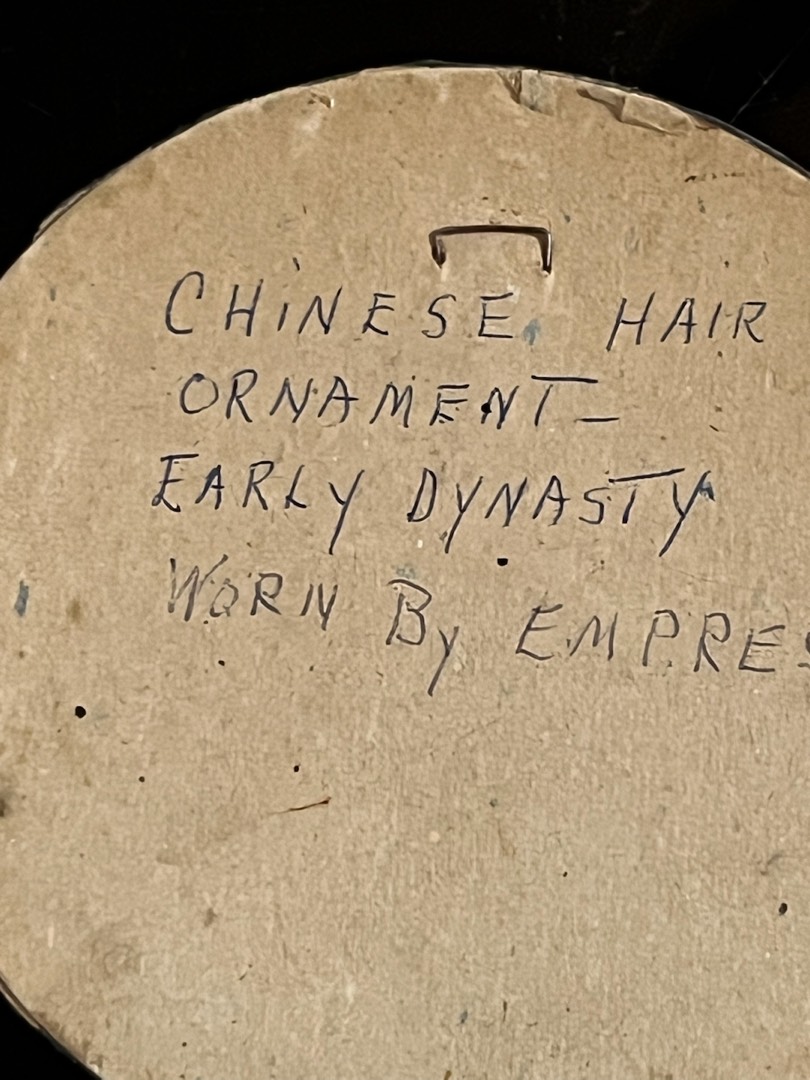 CHINESE HAIR
ORNAMENT-
EARLY DYNASTY
WORN By EMPRES